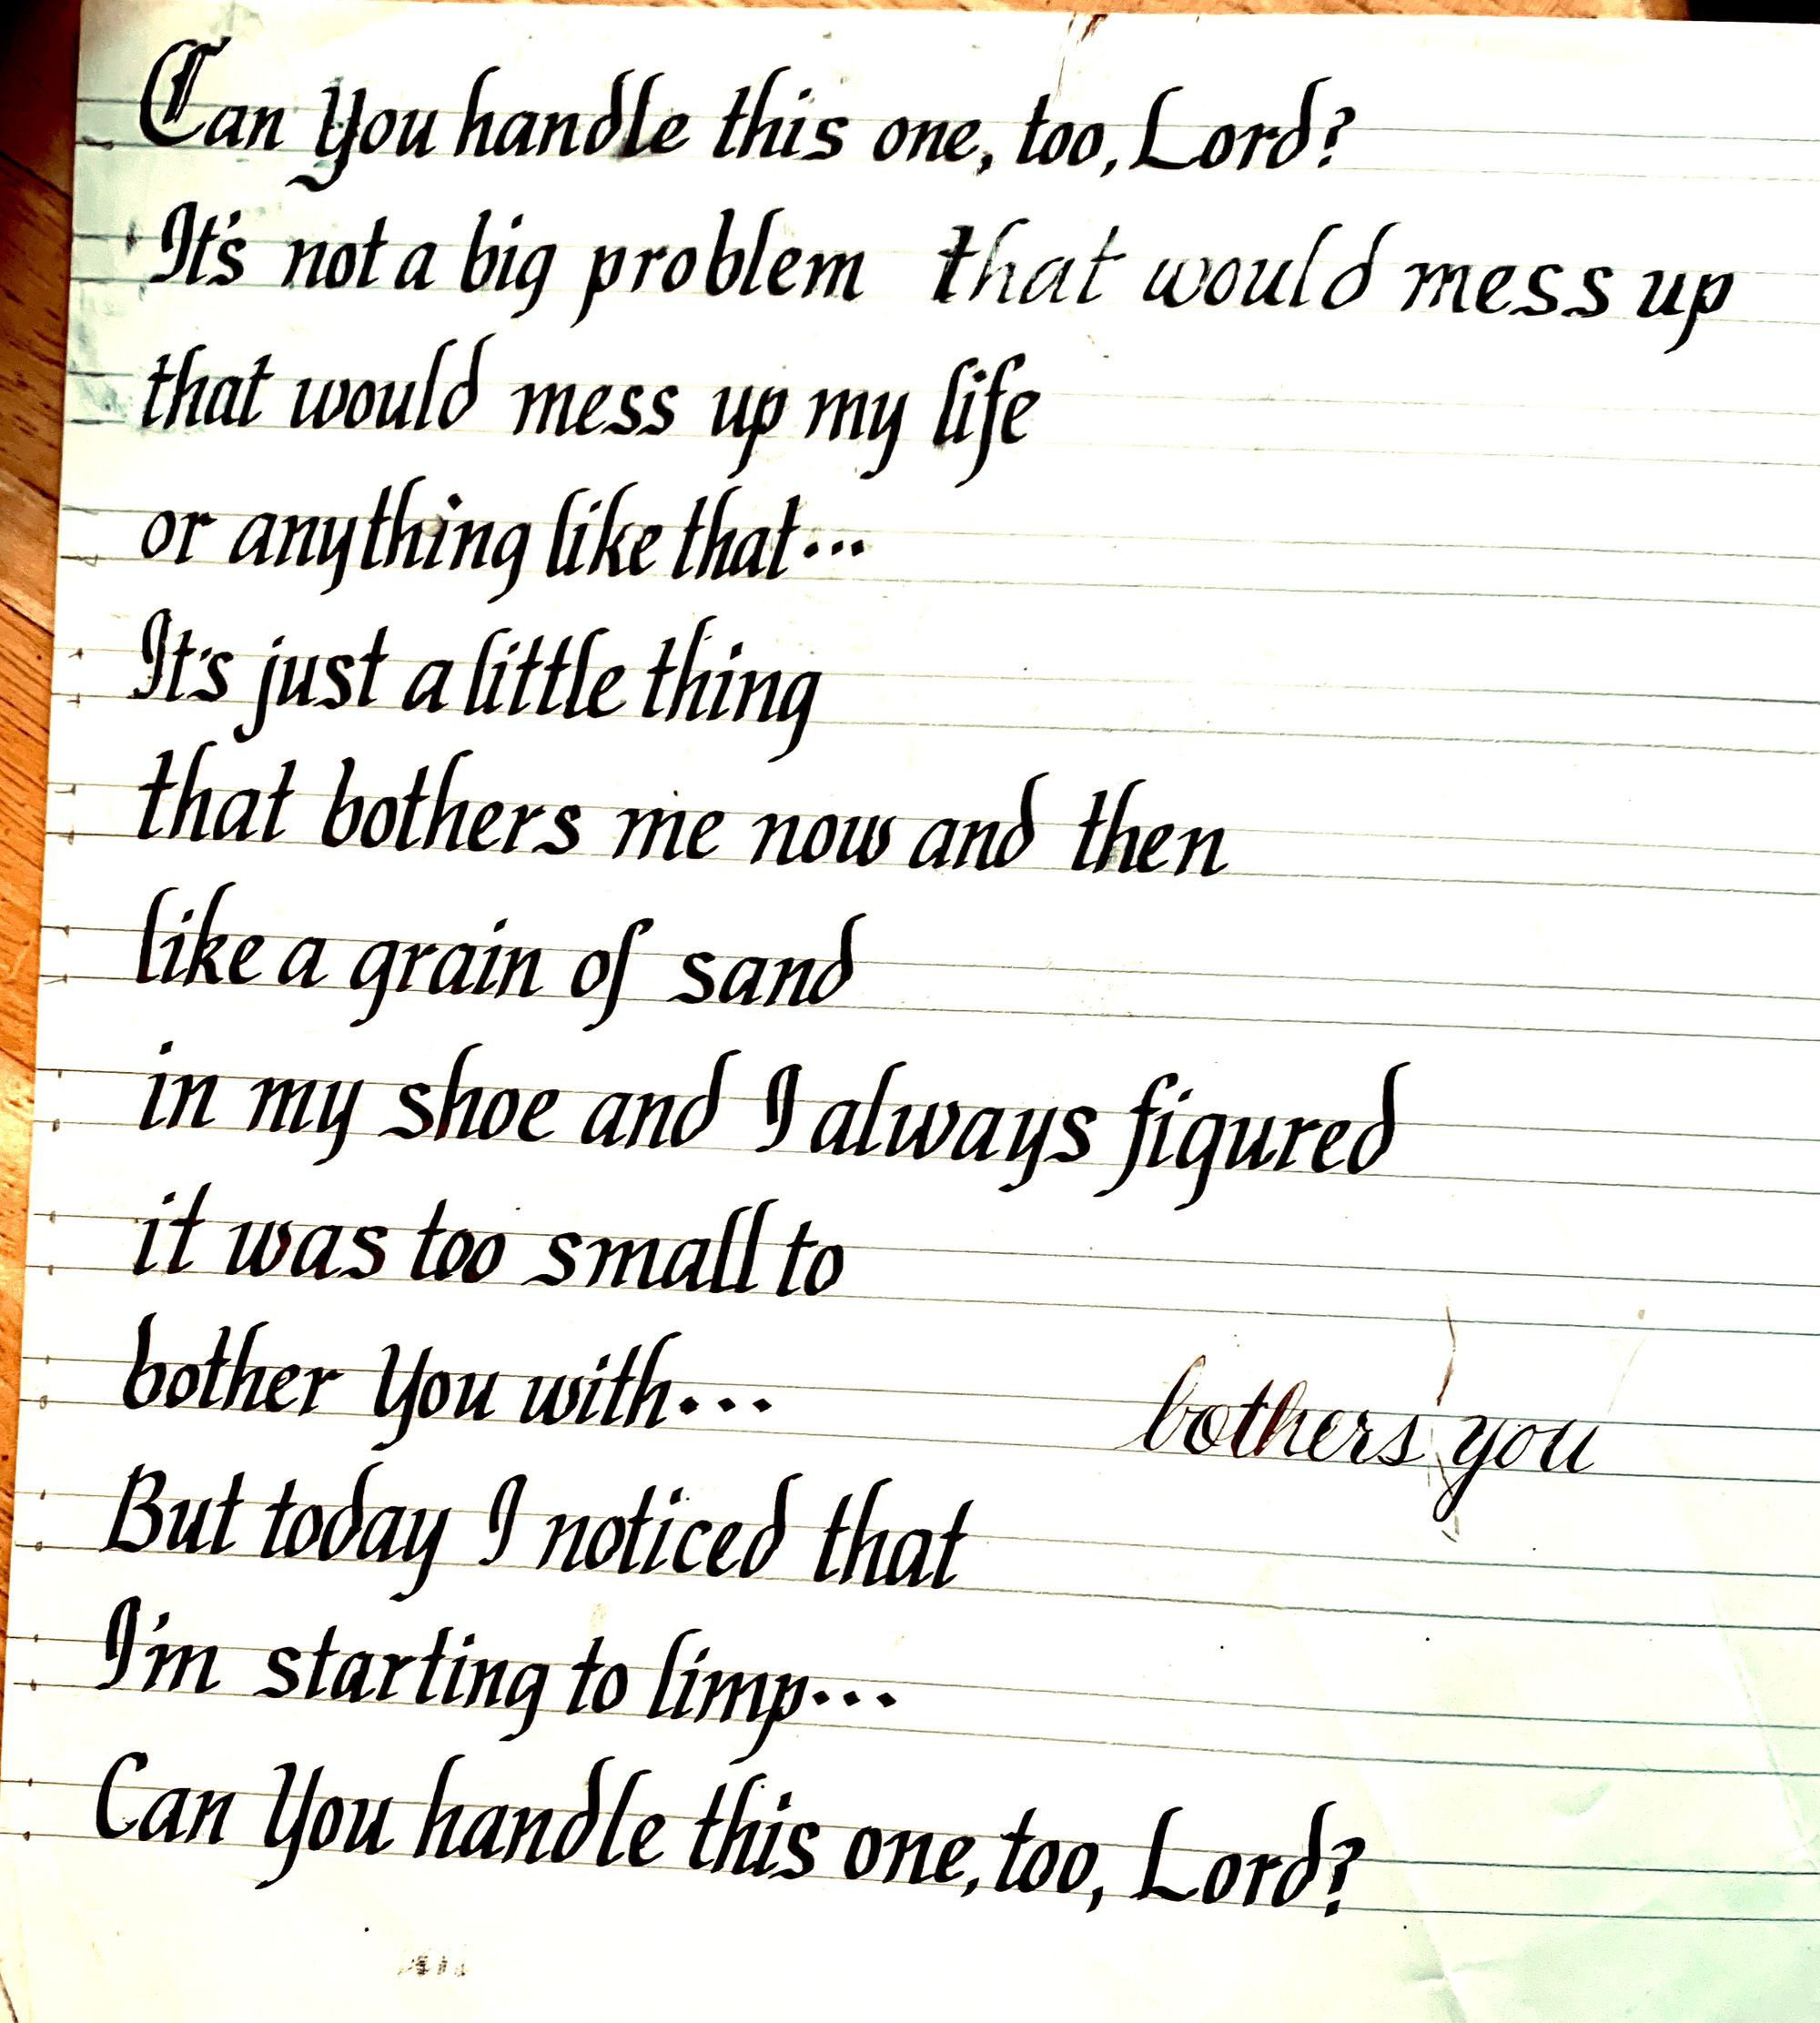 Can You handle this one, too, Lord?
It's not a big problem that would mess up
that would mess up my life
or anything like that...
It's just a little thing
that bothers me now and then
like a grain of sand
in my shoe and I always figured
it was too small to
bother You with...
bothers you
But today I noticed that
I'm starting to limp...
Can You handle this one, too, Lord?